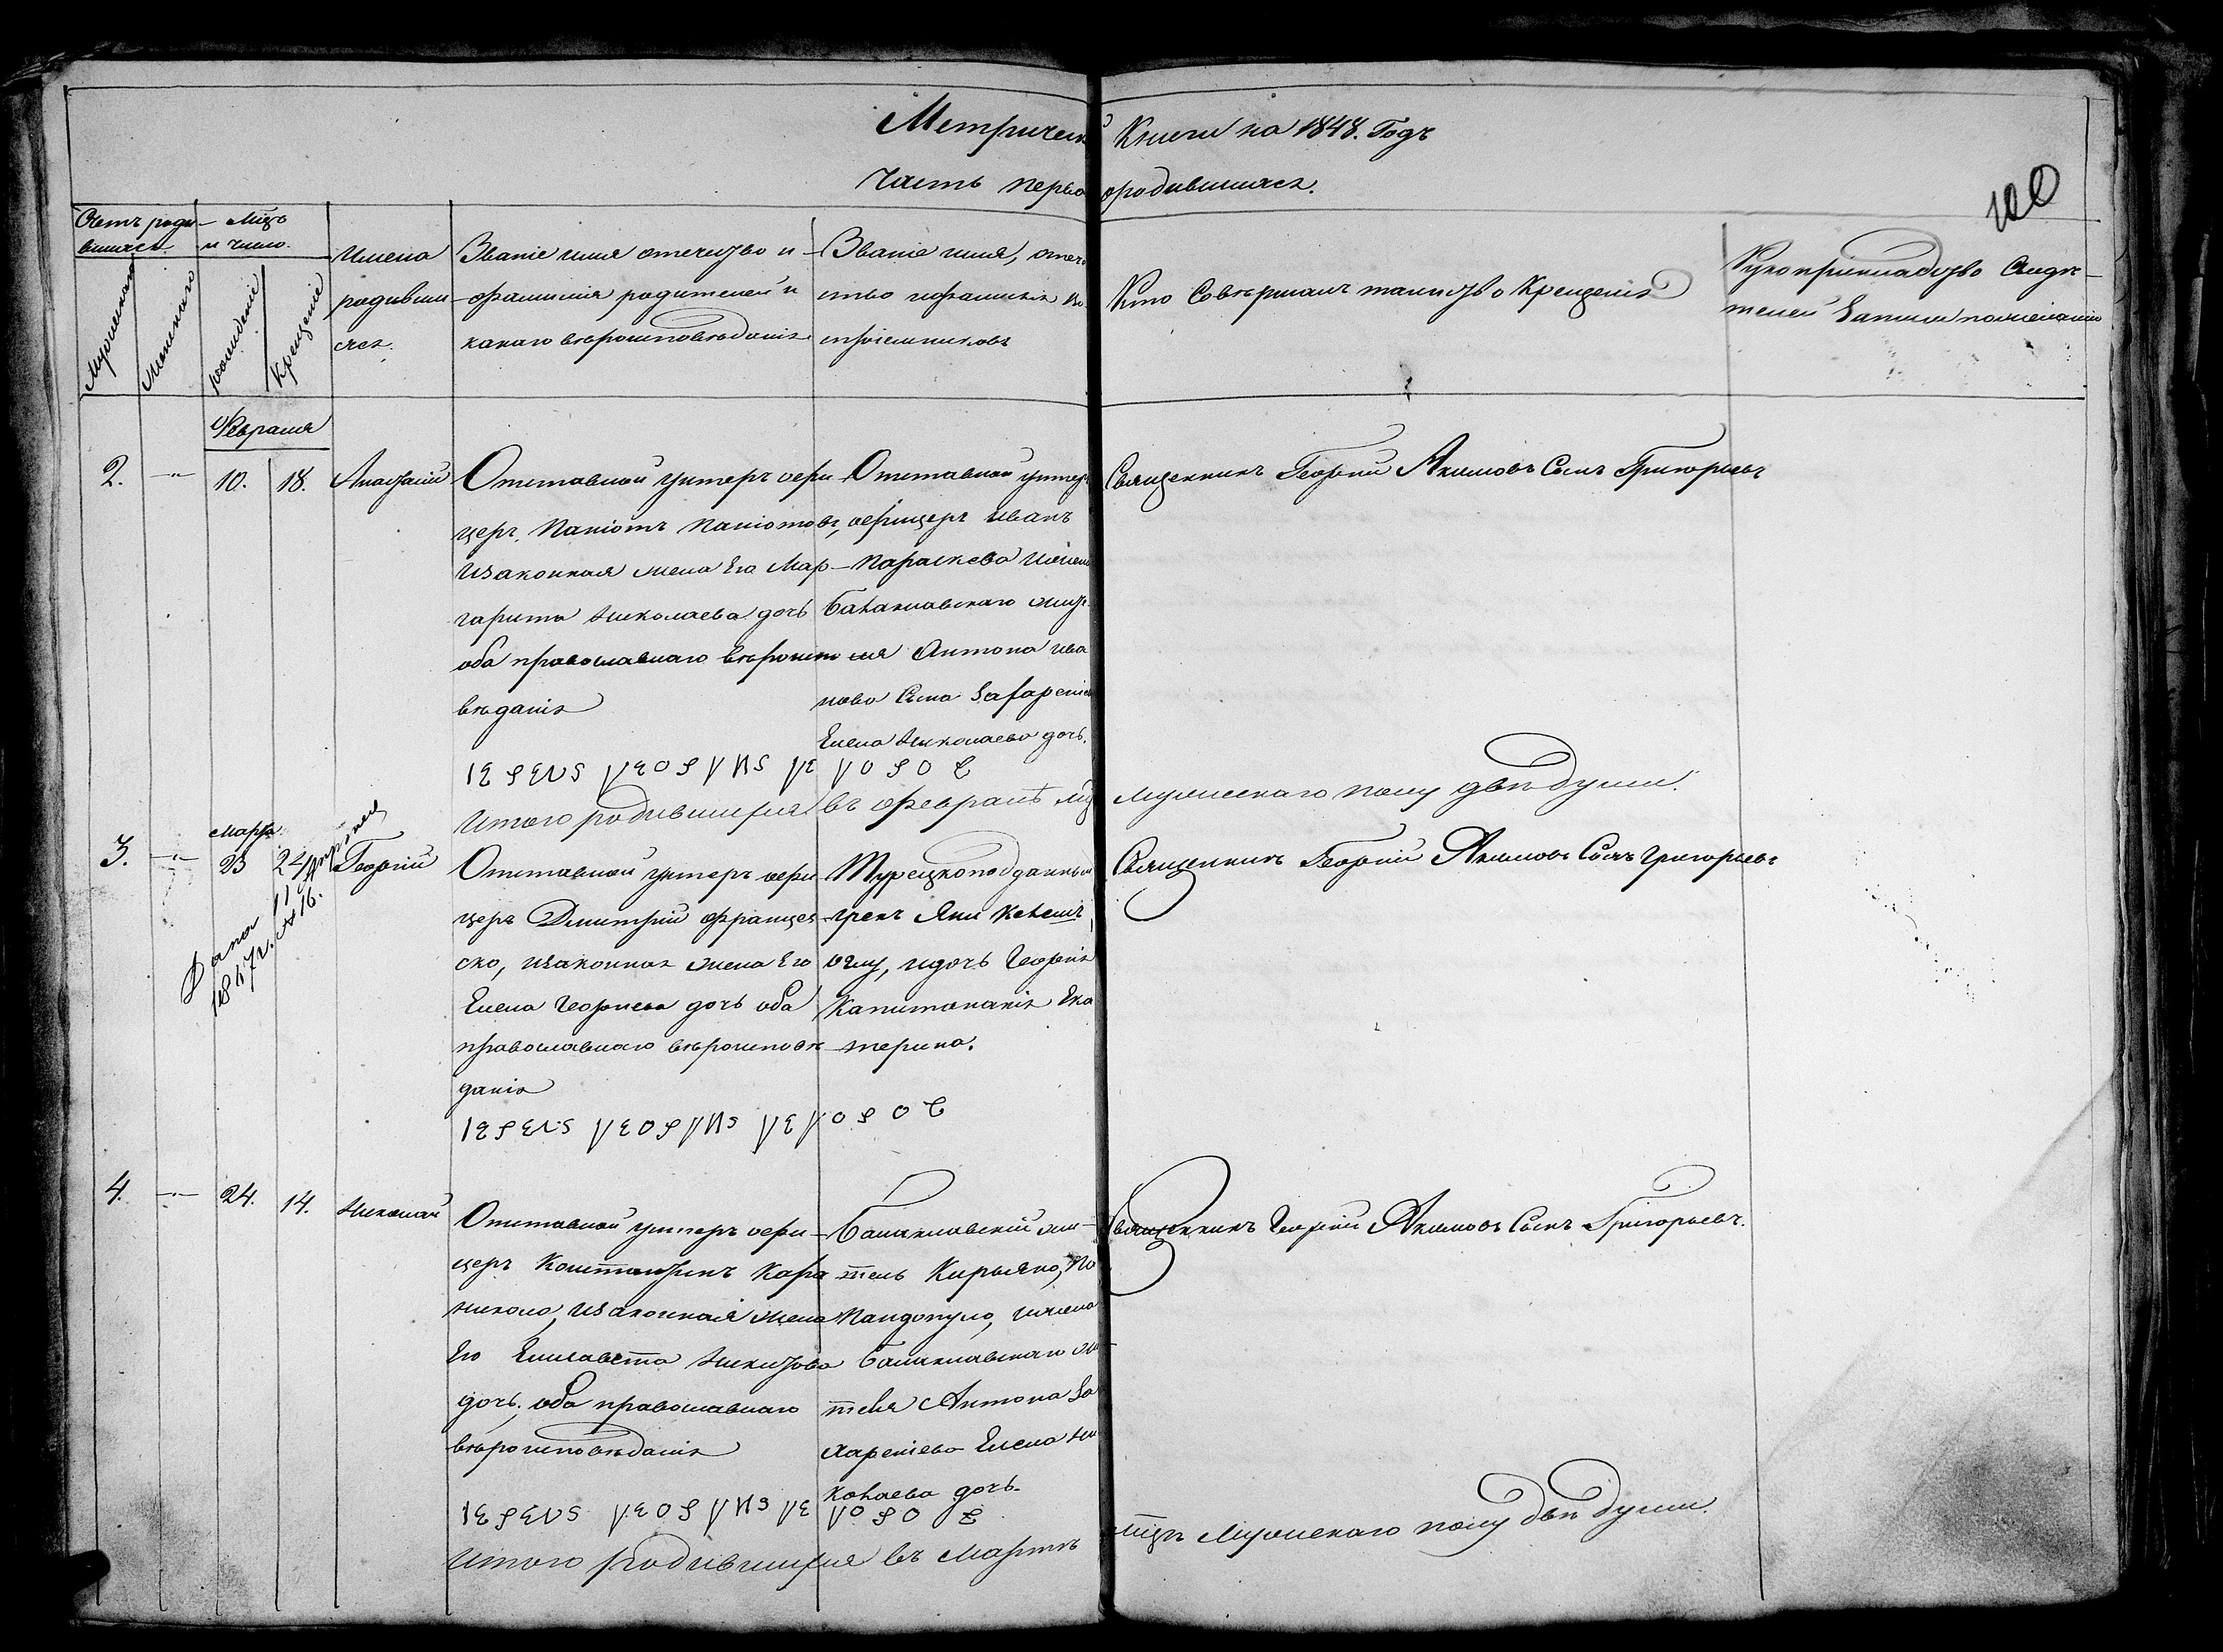 Метрической Книги на 1848. Годъ
Часть первая о родившихся.
100
Счетъ роди-
вшихся.
Мужескаго
Женскаго
Мѣцъ
и число.
рожденіе
Крещеніе
Имена
родивши-
хся.
Званіе имя отечество и
фамилія родителей и
какаго вѣроисповѣданія
Званіе имя, отече
ство и фамилія во
спріемниковъ
Кто Совершалъ таинство Крещенія
Рукоприкладство Свидѣ-
телей Записи по желанію
Февраля
2. -"- 10. 18. Анастасій
Отставной унтеръ офи
церъ Паніотъ Паніотовъ,
И законная жена Его Мар-
гарита Николаева дочь
оба православнаго вѣроиспо
вѣданія
Отставной унтеръ
офицеръ Иванъ
Параскева И жена
Балаклавскаго жите
ля Антона Ива
нова Сына Захарені
Елена Николаева дочь.
Священникъ Георгій Акимовъ Сынъ Григорьевъ
Итого родившихся въ Февралѣ мцѣ мужескаго полу двѣ души.
Марта
3. -"- 23 24 Георгій
Дана
1847г.
Отставной унтеръ офи
церъ Дмитрій Францес
ско, И законная жена Его
Елена Георгіева дочь оба
православнаго вѣроисповѣ
данія
Турецкоподданный
грекъ Яни
оглу, И дочь Георгія
Капитанакія Ека
терина.
Священникъ Георгій Акимовъ Сынъ Григорьевъ
4. -"- 24. 14. Николай
Отставной унтеръ офи-
церъ Константинъ Кара
николо, И законная жена
Его Елисавета Никитова
дочь, оба православнаго
вѣроисповѣданія
Балаклавскій жи-
тель Кирьяко, Па
пандопуло, И жена
Балаклавскаго жи
теля Антона За
харенієва Елена Ни
колаева дочь.
Священникъ Георгій Акимовъ Сынъ Григорьевъ.
Итого родившихся въ Мартѣ мцѣ Мужескаго полу двѣ души.